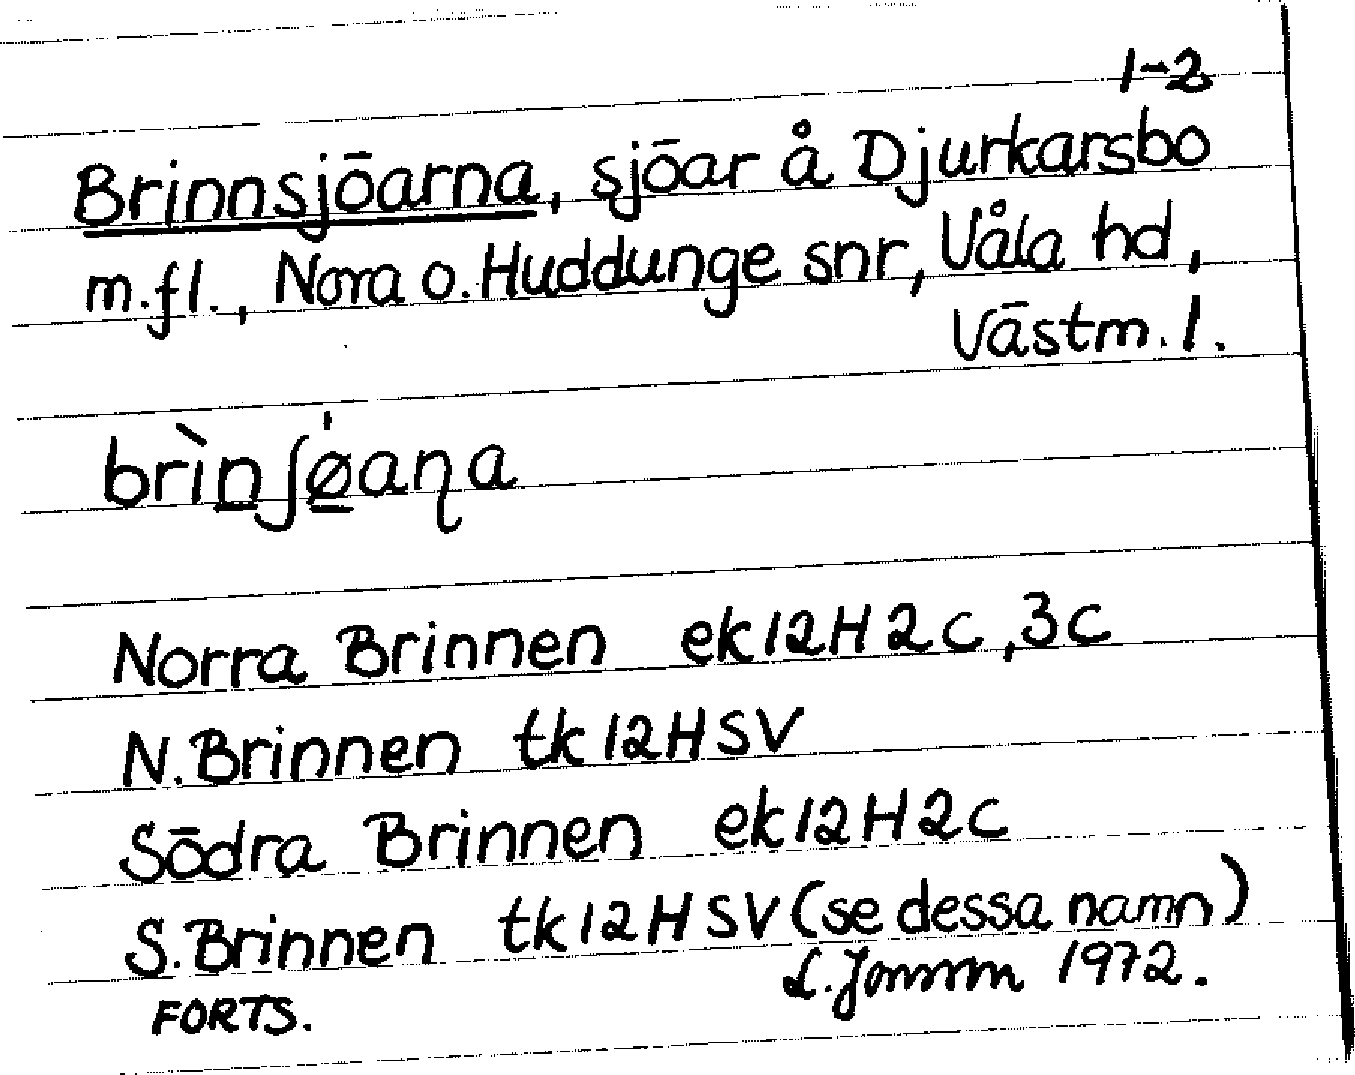 1-2
Brinnsjöarna, sjöar å Djurkarsbo
m.fl., Nora o. Huddunge snr, Våla hd,
Västm. l.
brìnʃø̀aɳa
Norra Brinnen ek 12H2c, 3c
N. Brinnen tk 12HSV
Södra Brinnen ek 12H2c
S. Brinnen tk 12HSV (se dessa namn)
L. Jonsson 1972.
FORTS.